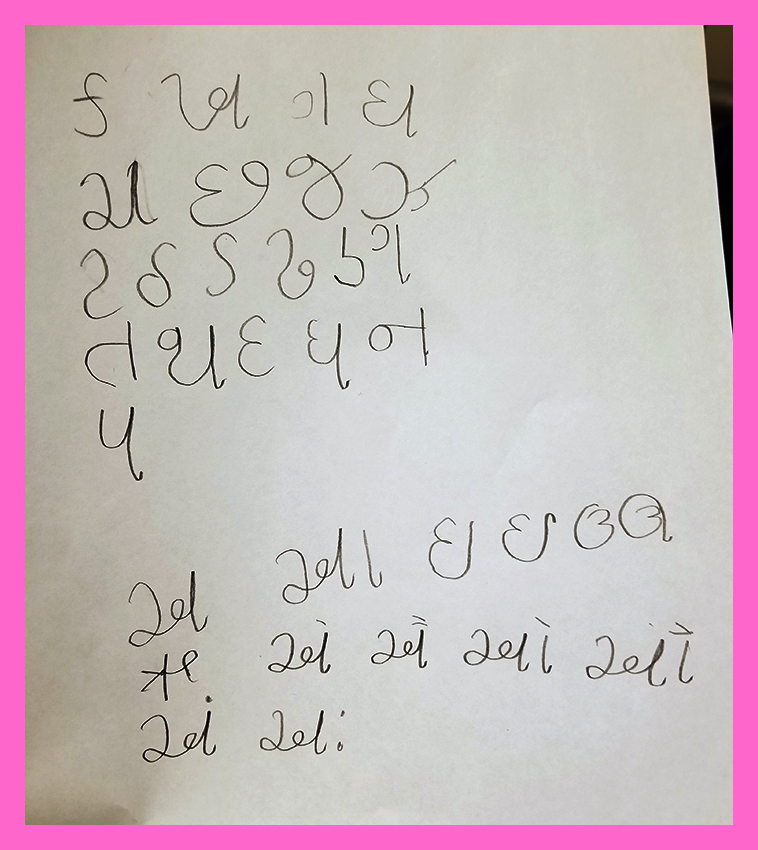 ક ખ ગ ઘ
ચ છ જ ઝ
ટ ઠ ડ ઢ ણ
ત થ દ ધ ન
પ
અ આ ઇ ઈ ઉ ઊ
ઋ એ ઐ ઓ ઔ
અં અઃ